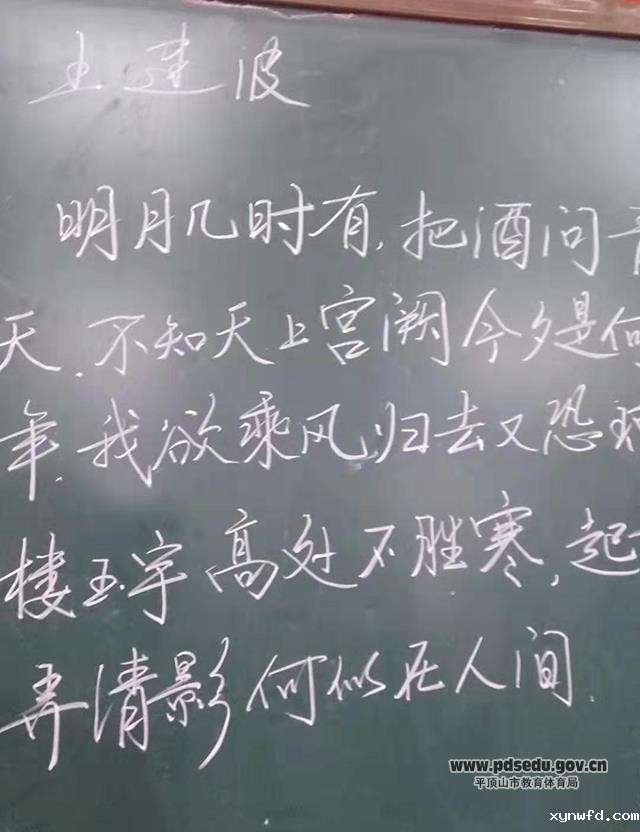 王建波
明月几时有,把酒问青
天.不知天上宫阙今夕是何
年.我欲乘风归去又恐琼
楼玉宇高处不胜寒,起
弄清影何似在人间.
www.pdsedu.gov.cn
平顶山市教育体育局
xynwfd.com